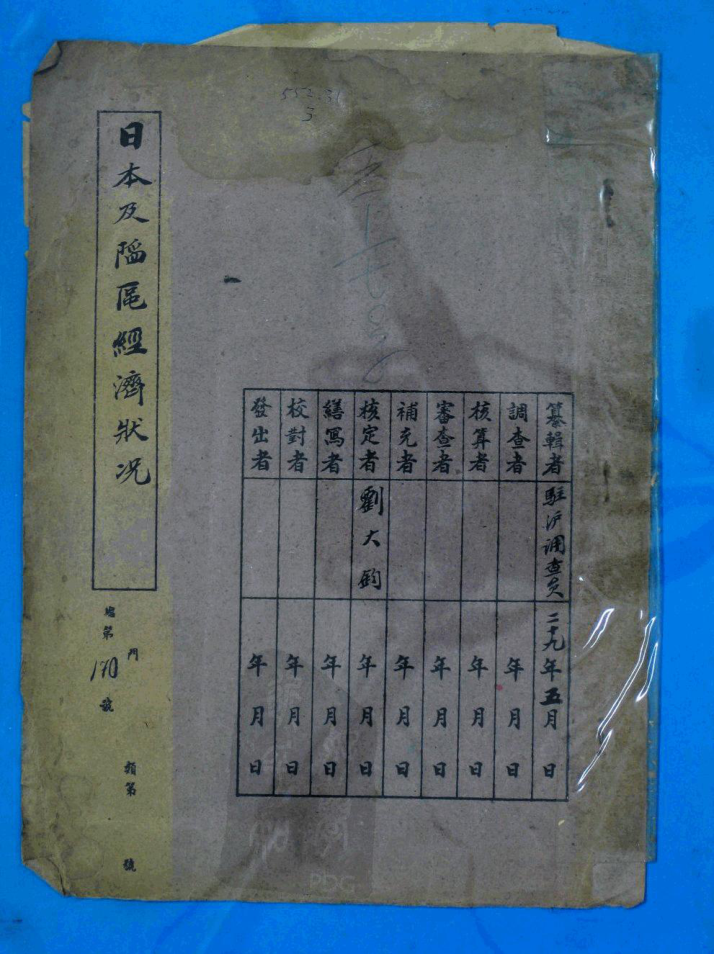 日本及陷區經濟狀况
總第170號
門
類第 號
纂輯者 駐沪调查员 二十九年五月 日
調查者 年 月 日
核算者 年 月 日
審查者 年 月 日
補充者 年 月 日
核定者 劉大鈞 年 月 日
繕寫者 年 月 日
校對者 年 月 日
發出者 年 月 日
PDG